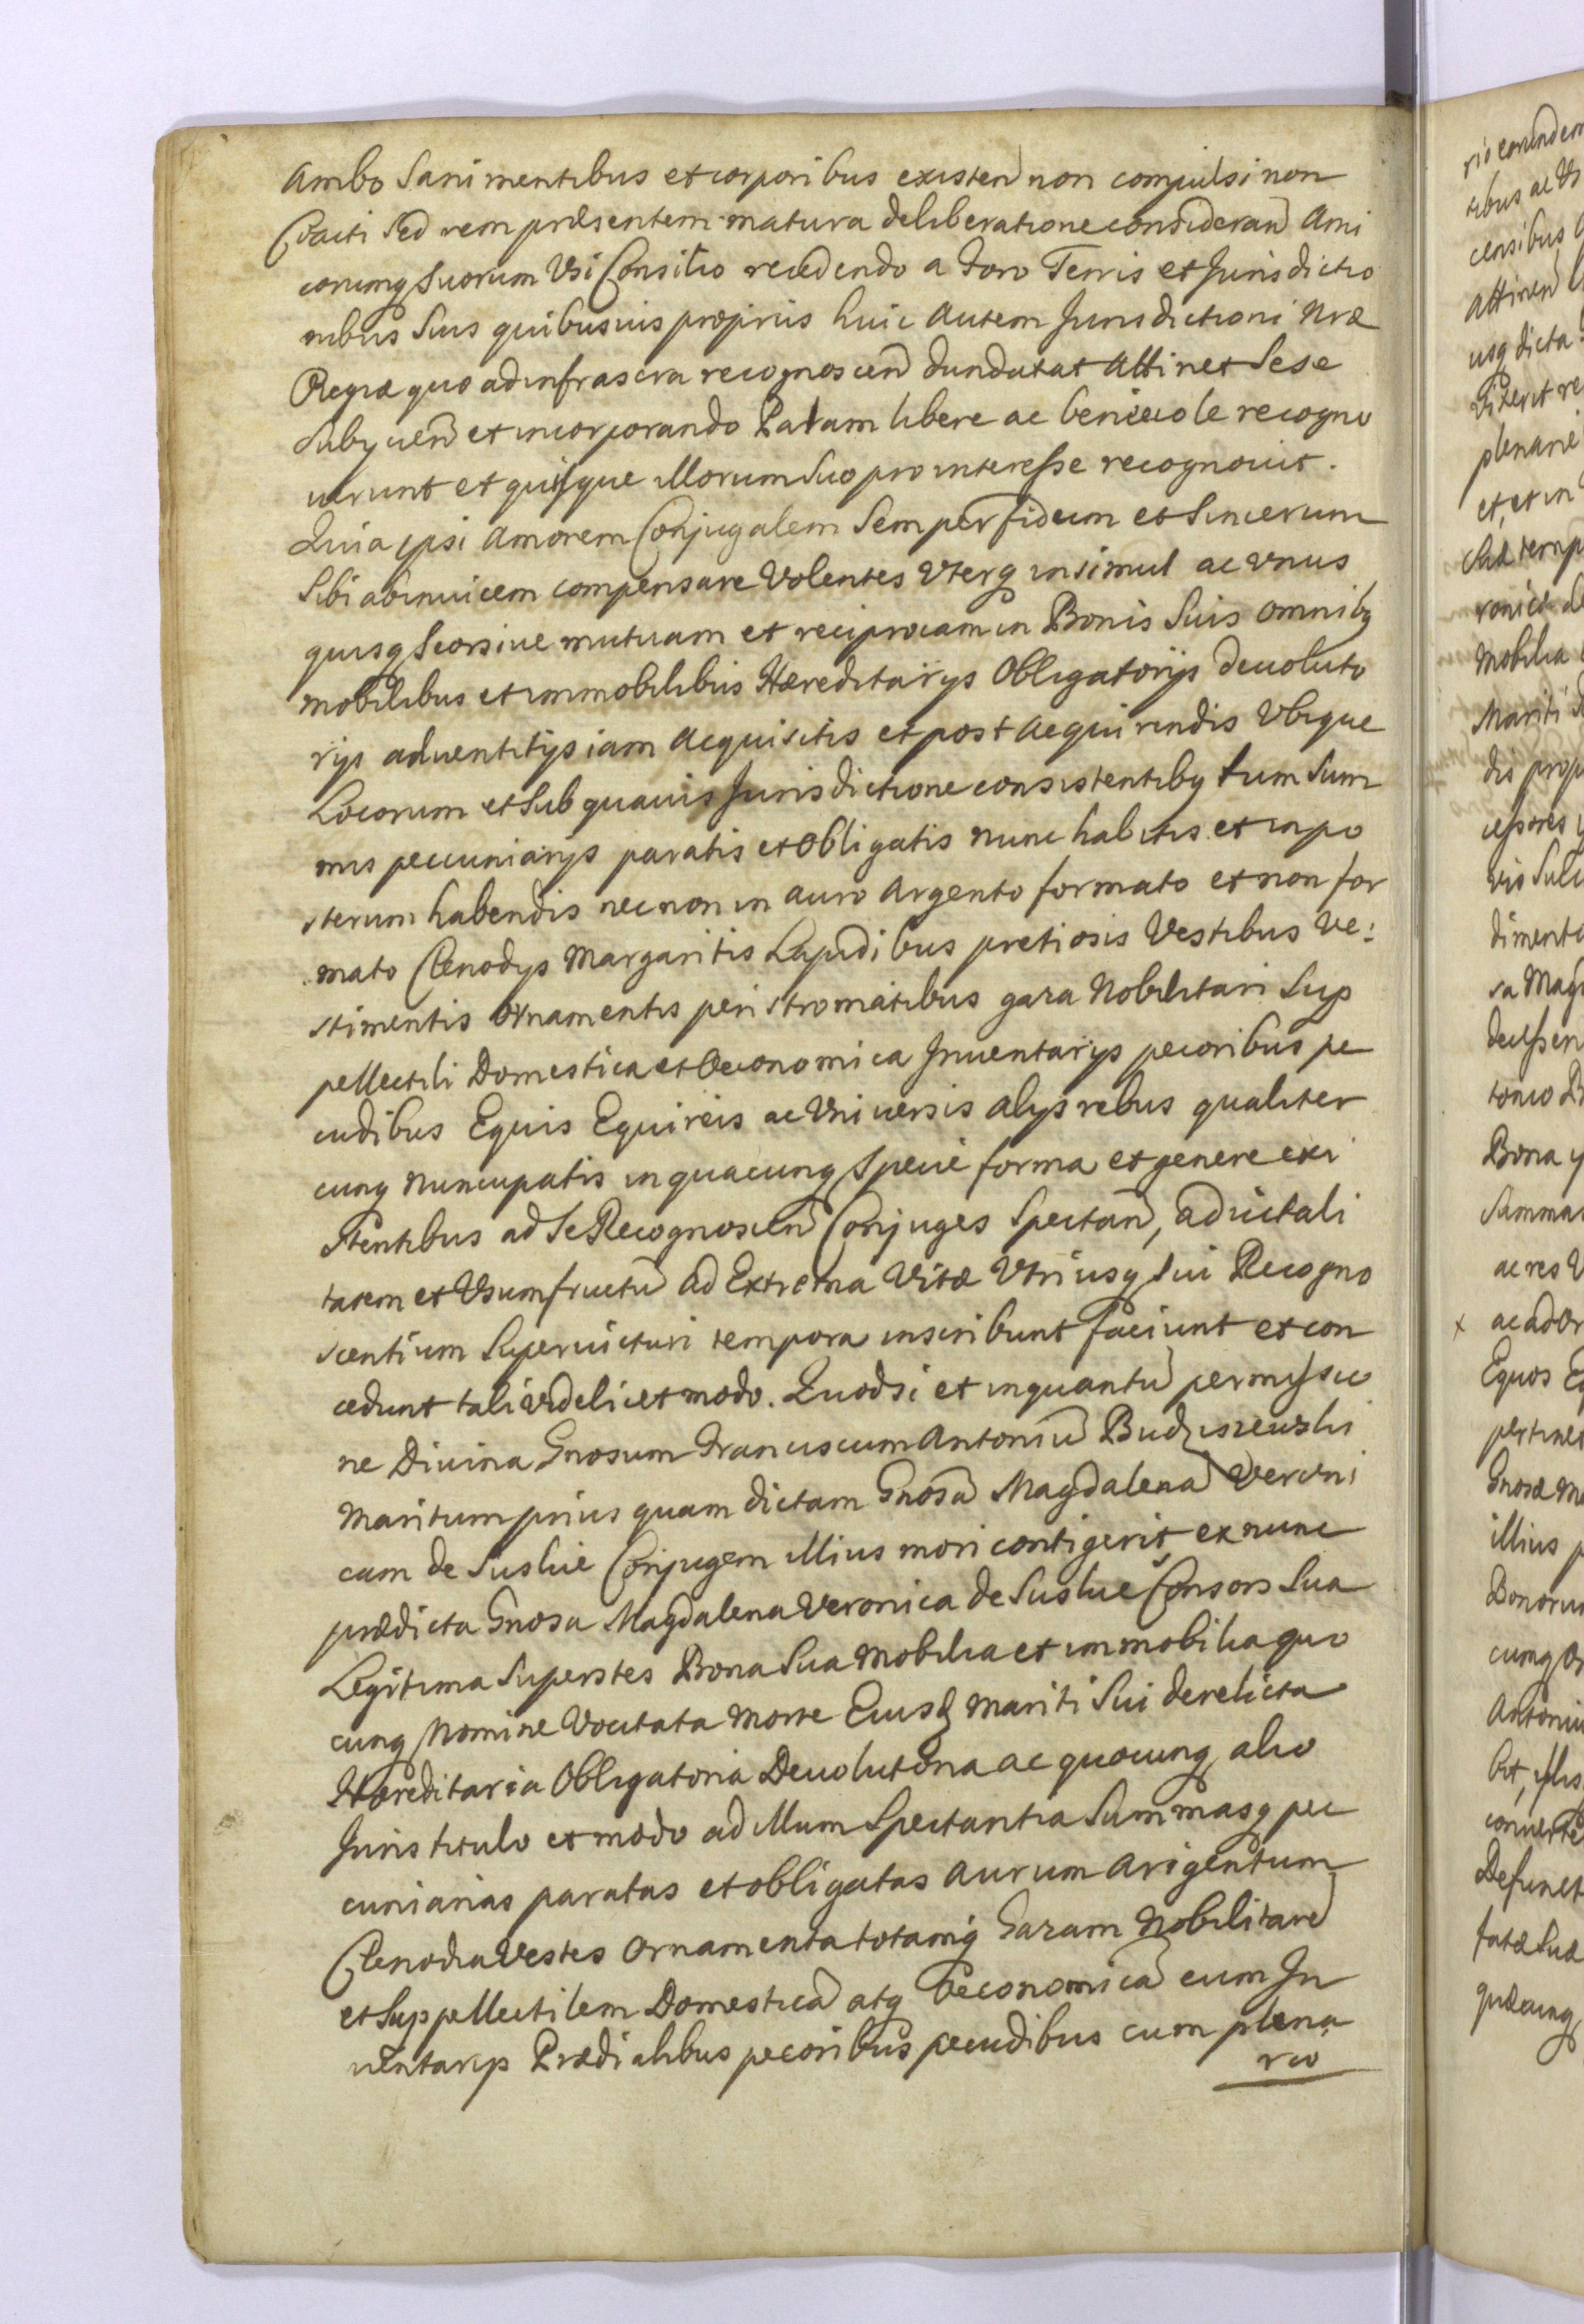 Ambo Sani mentibus et corporibus existen non compulsi non
Coacti Sed rem præsentem matura deliberatione consideran Ami
corumq Suorum Vsi Consilio recedendo a Foro Terris et Jurisdictio
nibus Suis quibusuis proprijs huic Autem Jurisdictioni Nræ
Regiæ quo ad infrascra recognoscen dundatat Attinet Sese
Subycien et incorporando Palam libere ac beniuole recogno
uerunt et quisque illorum Suo pro interesse recognouit.
Quia ipsi Amorem Conjugalem Semper fidum et Sincerum
Sibi abinuicem compensare Volentes Vterq insimul ac vnus
quisq Seorsiue mutuam et reciprocam in Bonis Suis omnibq
mobilibus et immobilibus Hæreditarijs Obligatorijs Deuoluto
rijs aduentitijs iam Acquisitis et post Acquirendis Vbique
Locorum et Sub quauis Jurisdictione consistentibq tum Sum
mis pecuniarijs paratis et Obligatis nunc habitis et inpo
sterum habendis necnon in auro Argento formato et non for
mato Clenodys Margaritis Lapidibus pretiosis Vestibus Ve:
stimentis Ornamentis peristromatibus gaza Nobilitari Sup
pellectili Domestica et Oeconomica Jnuentarijs pecoribus pe
cudibus Equis Equireis ac Vniuersis alys rebus qualiter
cunq Nuncupatis in quacunq Specie forma et genere exi
stentibus ad Se Recognoscen Conjuges Spectan, aduitali
tatem et Vsumfructu ad Extrema Vitæ Vtriusq Sui Recogno
scentium Superuicturi tempora inscribunt faciunt et con
cedunt tali videlicet modo. Quodsi et inquantu permissio
ne Diuina Gnosum Franciscum Antoniu Budziszewski
Maritum prius quam dictam Gnosa Magdalena Veroni
cam de Suskie Conjugem illius mori contigerit ex nunc
prædicta Gnosa Magdalena Veronica de Suskie Consors Sua
Legitima Superstes Bona Sua Mobilia et immobilia quo
cunq Nomine Vocitata Morte Eiusd Mariti Sui derelicta
Hæreditaria Obligatoria Deuolutoria ac quocunq alio
Juris titulo et modo ad illum Spectantia Summasq pec
cuniarias paratas et obligatas Aurum Arigentum
Clenodia Vestes Ornamenta totamq Gazam Nobilitare
et Suppellectilem Domestica atq Oeconomica cum Jn
uentarijs Prædialibus pecoribus pecudibus cum plena
rio